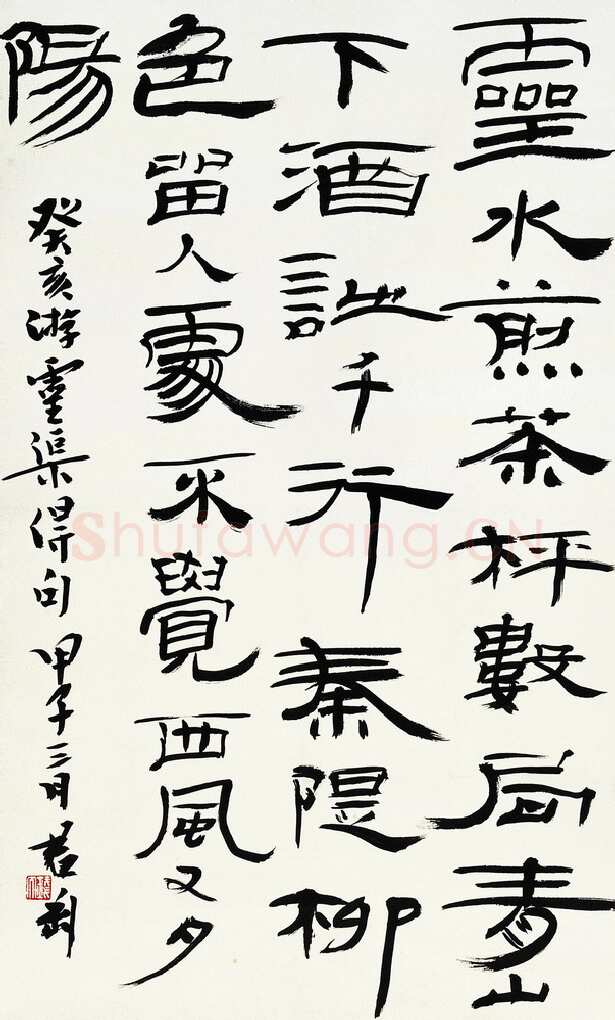 靈水煎茶枰數局青山
下酒詩千行秦隄柳
色留人處不覺西風又夕
陽
癸亥游霊渠得句 甲子三月
Shufawang.CN